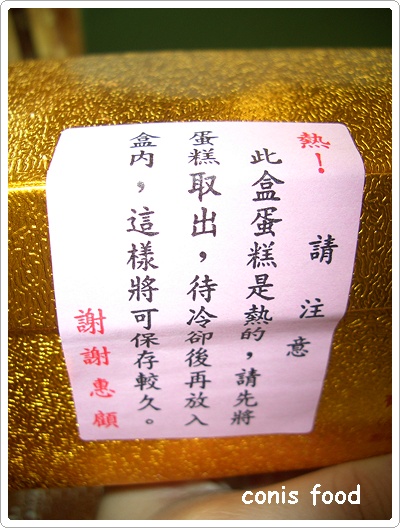 熱！請注意
此盒蛋糕是熱的，請先將
蛋糕取出，待冷卻後再放入
盒內，這樣將可保存較久。
謝謝惠顧
conis food